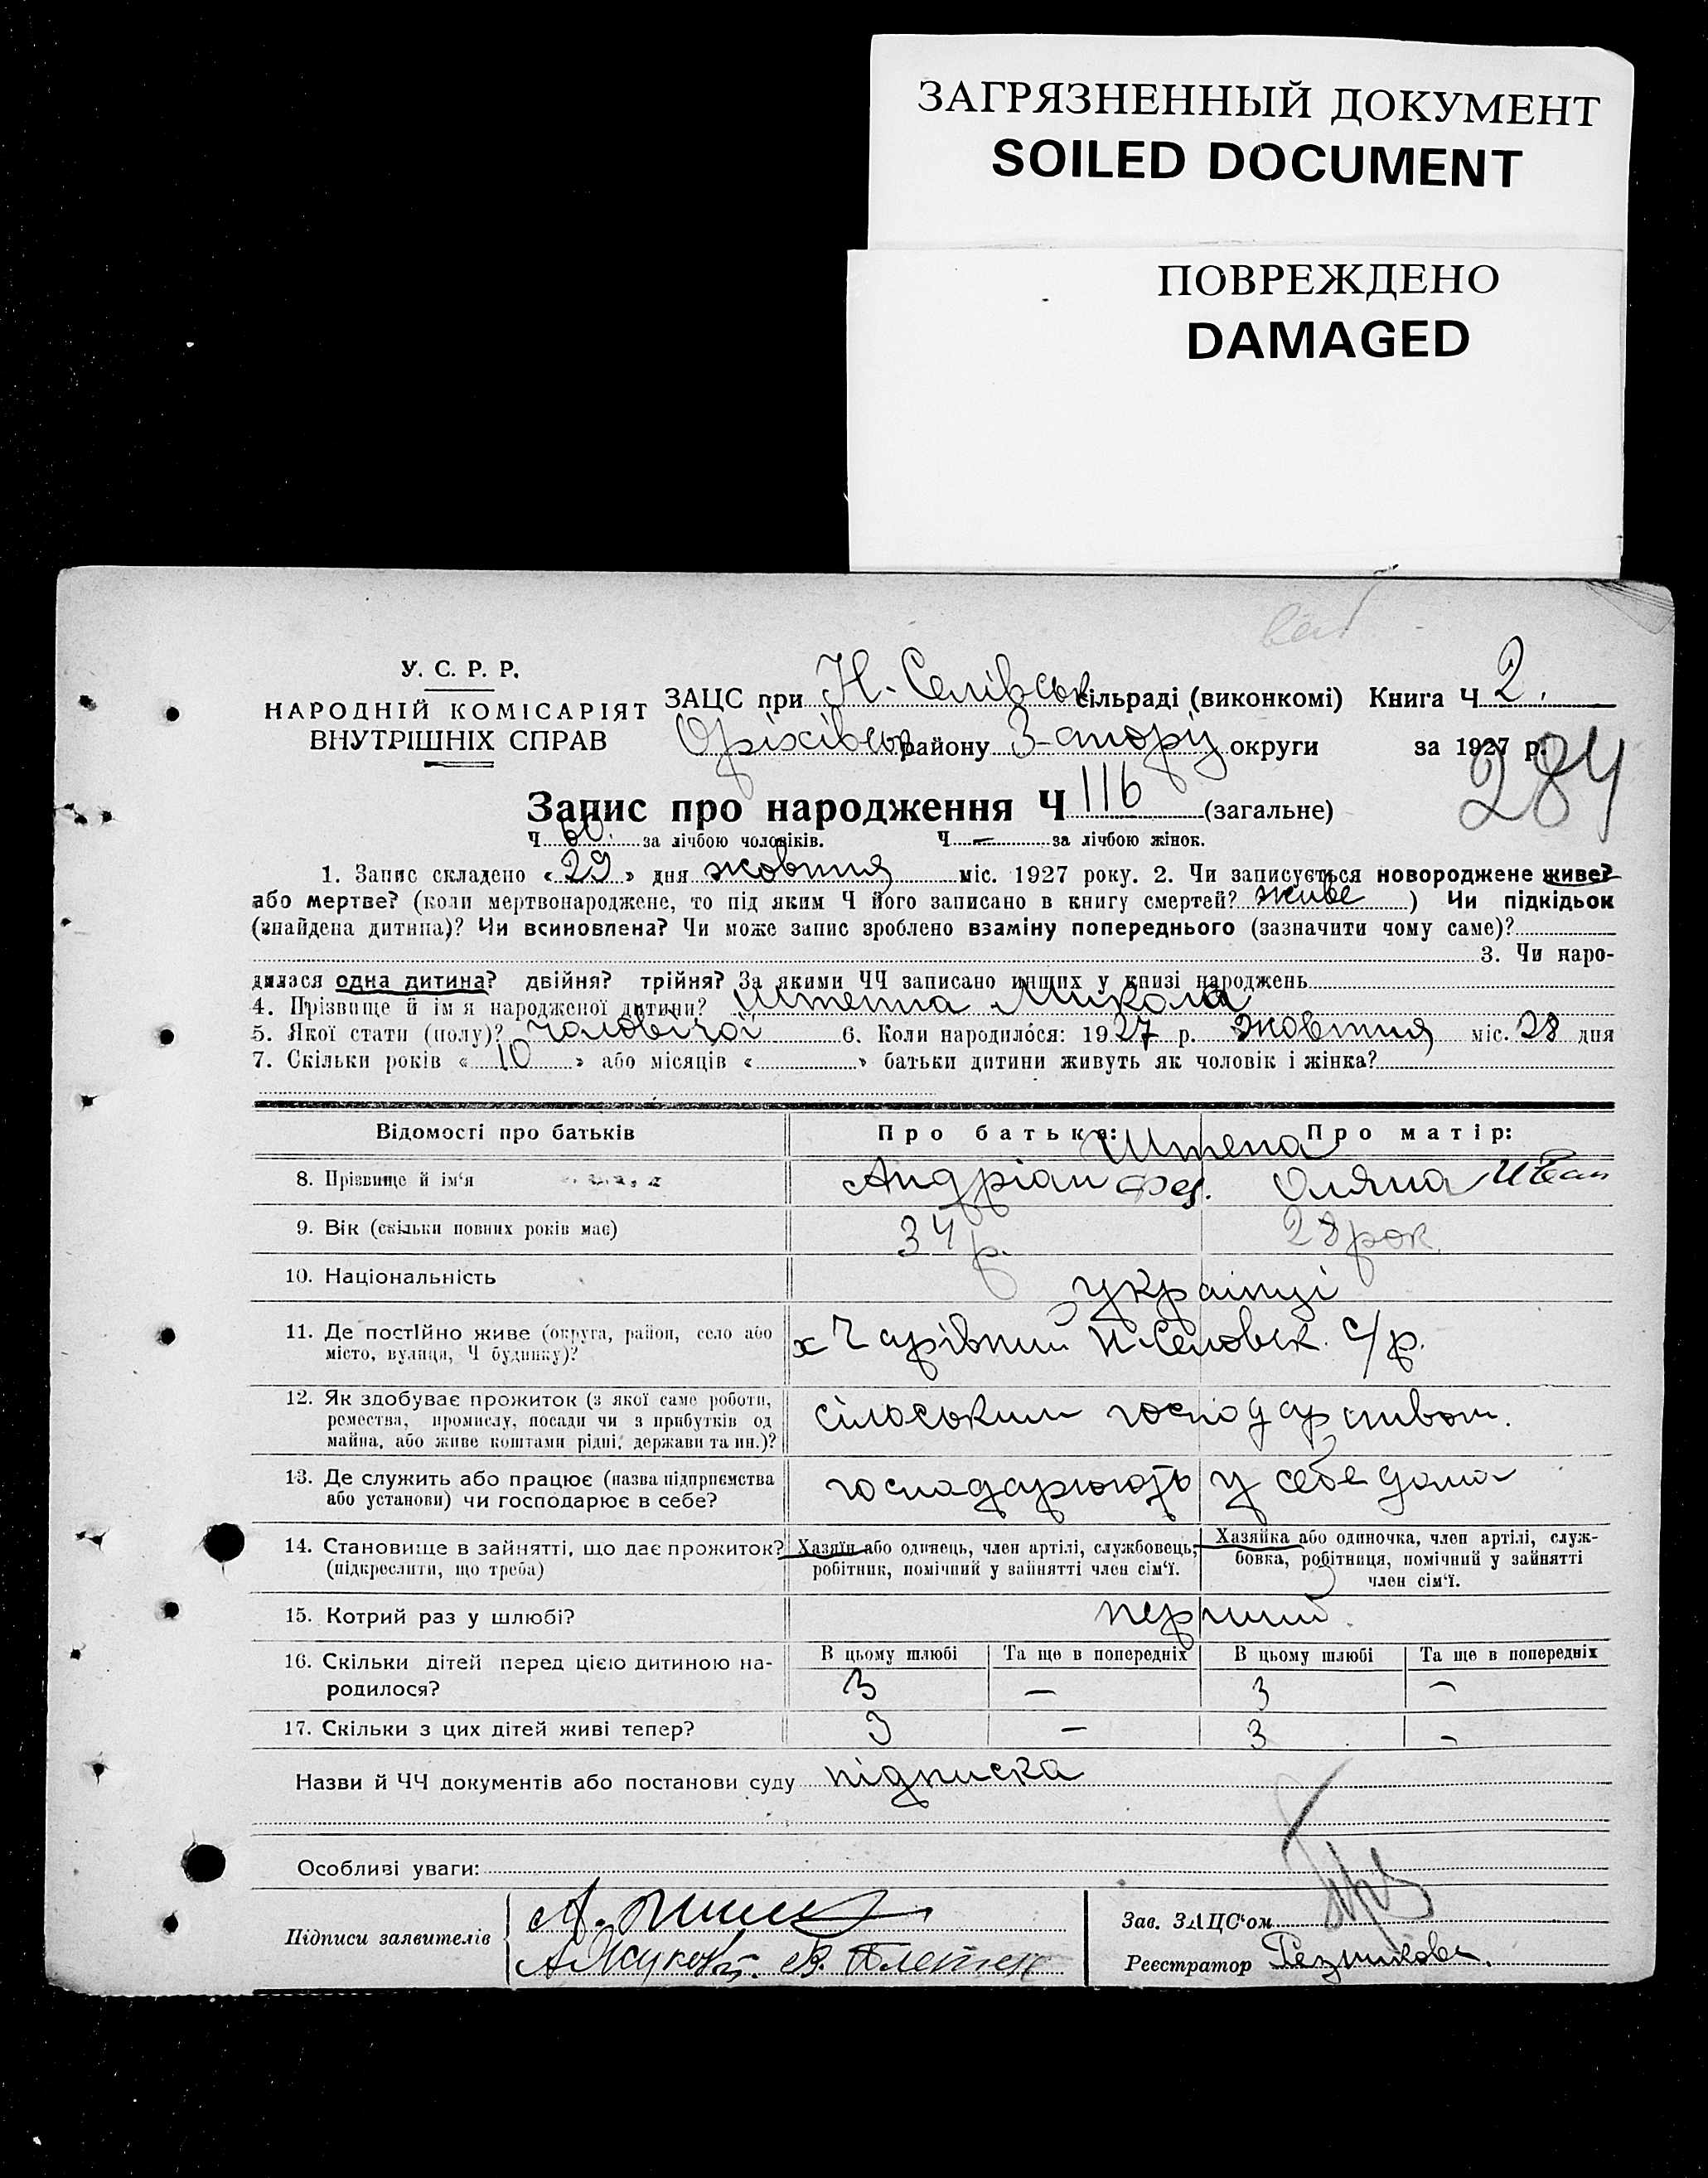 ЗАГРЯЗНЕННЫЙ ДОКУМЕНТ
SOILED DOCUMENT
ПОВРЕЖДЕНО
DAMAGED
У. С. Р. Р.
НАРОДНІЙ КОМІСАРІЯТ
ВНУТРІШНІХ СПРАВ
ЗАЦС при Н-Селівськ сільраді (виконкомі) Книга Ч 2.
Оріхівськ району З-апоріж округи за 1927 р.
284
Запис про народження Ч 116 (загальне)
Ч 60. за лічбою чоловіків. Ч — за лічбою жінок.
1. Запис складено «29» дня жовтня міс. 1927 року. 2. Чи записується новороджене живе?
або мертве? (коли мертвонароджене, то під яким Ч його записано в книгу смертей? живе ) Чи підкідьок
(знайдена дитина)? Чи всиновлена? Чи може запис зроблено взаміну попереднього (зазначити чому саме)?
3. Чи наро-
дилася одна дитина? двійня? трійня? За якими ЧЧ записано инших у книзі народжень
4. Прізвище й ім'я народженої дитини? Штепа Микола
5. Якої стати (полу)? чоловічої 6. Коли народилося: 1927 р. жовтня міс. 28 дня
7. Скільки років «10» або місяців « » батьки дитини живуть як чоловік і жінка?
Відомості про батьків Про батька: Про матір:
Штепа
8. Прізвище й ім'я Андріан Фед. Оляна Іван
9. Вік (скільки повних років має) 34 р. 28 рок.
10. Національність українці
11. Де постійно живе (округа, район, село або х Чарівний Н-Селовск. с/р.
місто, вулиця, Ч будинку)?
12. Як здобуває прожиток (з якої саме роботи, сільським господарством.
ремества, промислу, посади чи з прибутків од
майна, або живе коштами рідні, держави та ин.)?
13. Де служить або працює (назва підприємства господарюють у себе дома
або установи) чи господарює в себе?
14. Становище в зайнятті, що дає прожиток? Хазяїн або одинець, член артілі, службовець, Хазяйка або одиночка, член артілі, служ-
(підкреслити, що треба) робітник, помічний у зайнятті член сім'ї. бовка, робітниця, помічний у зайнятті
член сім'ї.
15. Котрий раз у шлюбі? перший.
16. Скільки дітей перед цією дитиною на- В цьому шлюбі Та ще в попередніх В цьому шлюбі Та ще в попередніх
родилося? 3 — 3 —
17. Скільки з цих дітей живі тепер? 3 — 3 —
Назви й ЧЧ документів або постанови суду підписка
Особливі уваги:
Підписи заявителів
Зав. ЗАЦС'ом
Реєстратор Резникова.